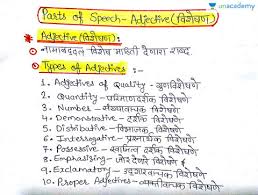 unacademy
Parts of Speech - Adjective (विशेषण)
Adjective (विशेषण) :
नामाबद्दल विशेष माहिती देणारा शब्द.
Types of Adjectives :-
1. Adjectives of Quality - गुणविशेषणे
2. Quantity - परिमाणदर्शक विशेषणे
3. Number - संख्यावाचक विशेषणे
4. Demonstrative - दर्शक विशेषणे
5. Distributive - विभाजक विशेषणे
6. Interrogative - प्रश्नार्थक विशेषणे
7. Possessive - स्वामित्व दर्शक विशेषणे
8. Emphasizing - जोर देणारे विशेषणे
9. Exclamatory - उद्गारवाचक विशेषणे
10. Proper Adjectives -